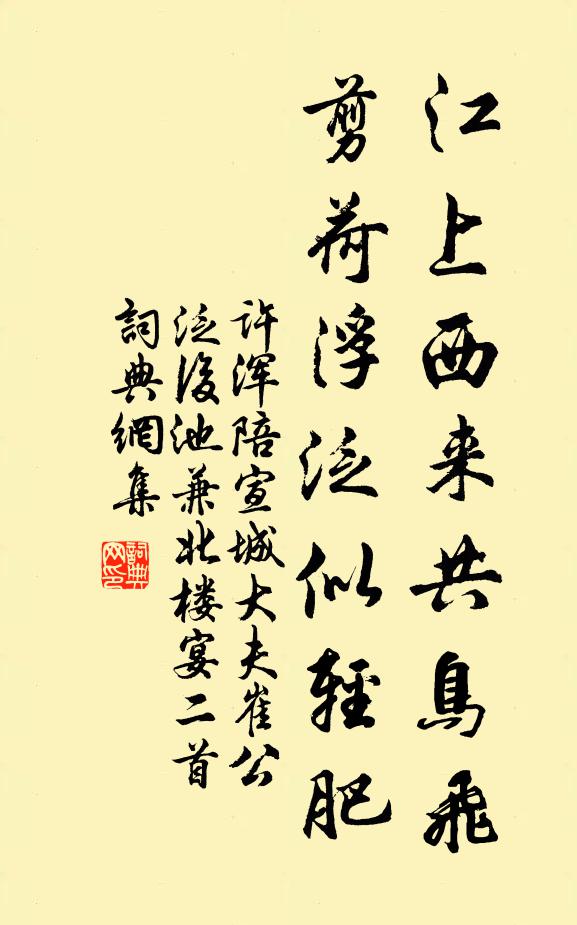 江上西来共鳥飛
剪荷浮泛似輕肥
许渾陪宣城大夫崔公
泛後池兼北楼宴二首
詞典網集
詞典
网印